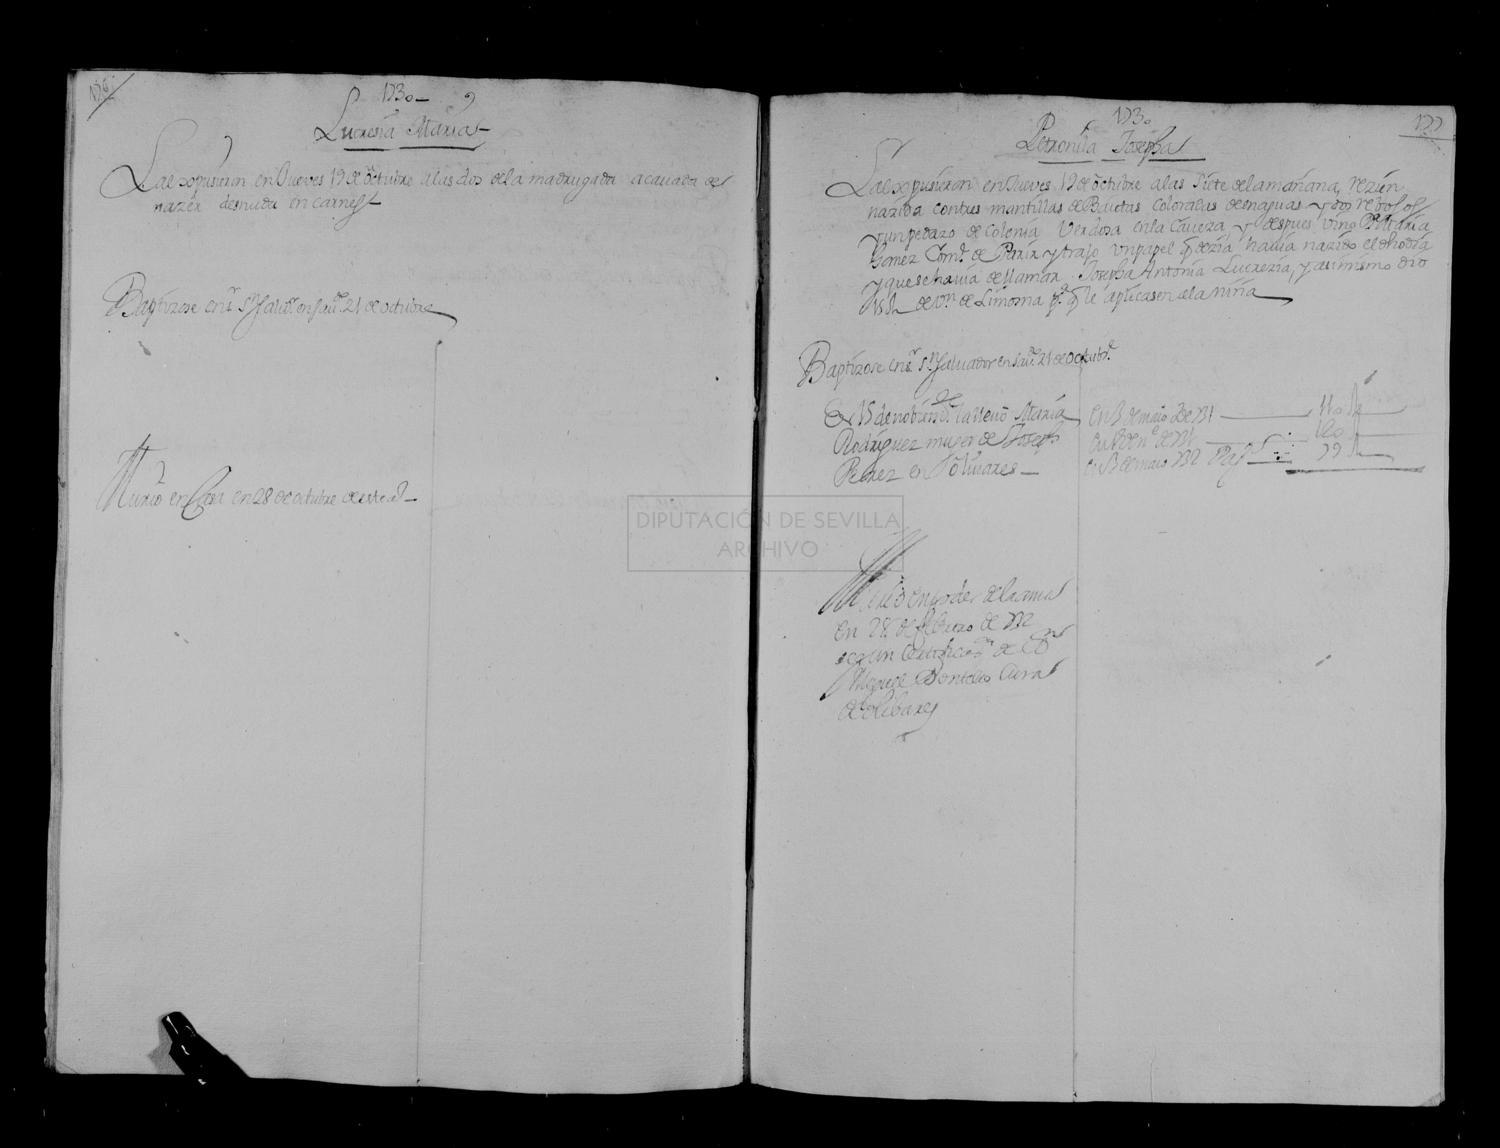 176
1730
Lucresia Maria
La expusieron en Jueves 19 de octubre a las dos de la madrugada acavada de
nazer desnuda en carnes
Baptizose en Sr. Sn. Salbr. en Savdo. 21 de octubre
Murio en Casa en 28 de octubre de este año
1730
177
Petronila Josepha
La expusieron en Jueves 19 de octubre a las siete de la mañana, rezien
nazida con tres mantillas de Baietas coloradas de enaguas y dos rebolbs
y un pedazo de colonia Verdosa en la Caveza y despues vino Da. Maria
Gomez Comre. de Parir y trajo un papel q dezia havia nazido el dho dia
y que se havia de llamar Josepha Antonia Lucrezia, y asimismo dio
15 Rs. de vn. de Limosna pa. q se aplicasen a la niña
Baptizose en Sr. Sn. Salvador en Savdo. 21 de octubre
En 15 de nobre. de la llevo Maria
Rodriguez muger de Joseph
Perez en Olivares
En 3 de maio de 731 110 R
En de ne. de 731 120
En 3 de maio 732 Pago 79 R
Murio en poder de la ama
en 28 de febrero de 732
segun Certificacon. de Dn
Miguel Cura
de olibares
DIPUTACIÓN DE SEVILLA
ARCHIVO